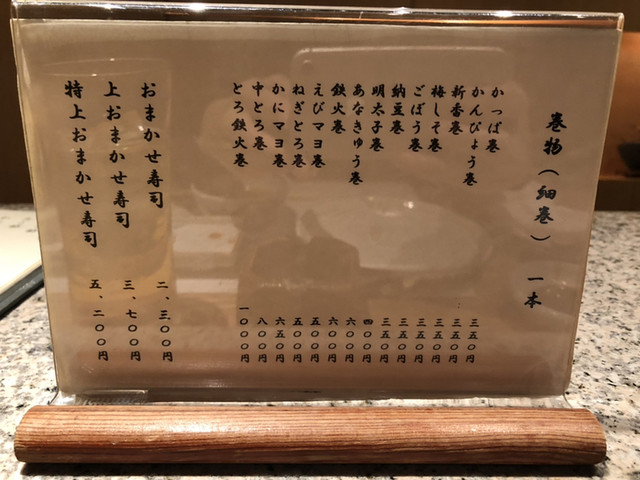 巻物(細巻) 一本
かっぱ巻 三五〇円
かんぴょう巻 三五〇円
新香巻 三五〇円
梅しそ巻 三五〇円
ごぼう巻 三五〇円
納豆巻 三五〇円
明太子巻 四〇〇円
あなきゅう巻 六〇〇円
鉄火巻 六〇〇円
えびマヨ巻 五〇〇円
ねぎとろ巻 五〇〇円
かにマヨ巻 六五〇円
中とろ巻 八〇〇円
とろ鉄火巻 一〇〇〇円
おまかせ寿司 二、三〇〇円
上おまかせ寿司 三、七〇〇円
特上おまかせ寿司 五、二〇〇円